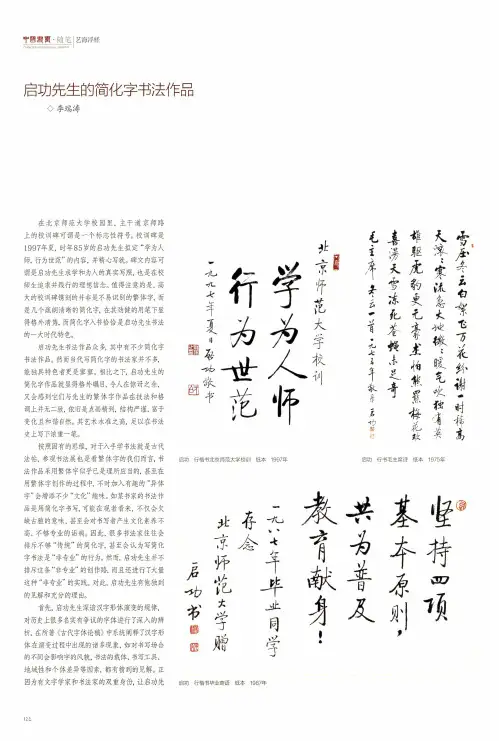 中国收藏·随笔|艺海浮桥
启功先生的简化字书法作品
◇ 李瑞涛
在北京师范大学校园里，主干道京师路
上的校训碑可谓是一个标志性符号。校训碑是
1997年夏，时年85岁的启功先生拟定“学为人
师，行为世范”的内容，并精心写就。碑文内容可
谓是启功先生求学和为人的真实写照，也是在校
师生追求并践行的理想信念。值得注意的是，高
大的校训碑镌刻的并非是不易识别的繁体字，而
是几个疏朗清晰的简化字，在其劲健的用笔下显
得格外清雅。而简化字入书恰恰是启功先生书法
的一大时代特色。
启功先生书法作品众多，其中有不少简化字
书法作品。然而当代写简化字的书法家并不多，
能独具特色者更是寥寥。相比之下，启功先生的
简化字作品就显得格外瞩目，令人在惊讶之余，
又会感到它们与先生的繁体字作品在技法和格
调上并无二致，依旧是点画精到，结构严谨，富于
变化且和谐自然。其艺术水准之高，足以在书法
史上写下浓重一笔。
按照固有的思维，对于入手学书法就是古代
法帖，参观书法展也是看繁体字的我们而言，书
法作品采用繁体字似乎已是理所应当的，甚至在
用繁体字创作的过程中，不时加入有趣的“异体
字”会增添不少“文化”趣味。如某书家的书法作
品是用简化字书写，可能在观者看来，不仅会欠
缺古雅的意味，甚至会对书写者产生文化素养不
高、不够专业的诟病。因此，很多书法家往往会
排斥不够“传统”的简化字，甚至会认为写简化
字书法是“非专业”的行为。然而，启功先生并不
排斥这条“非专业”的创作路，而且还进行了大量
这种“非专业”的实践。对此，启功先生有他独到
的见解和充分的理由。
首先，启功先生深谙汉字形体演变的规律，
对历史上很多名实有争议的字体进行了深入的辨
析，在所著《古代字体论稿》中系统阐释了汉字形
体在演变过程中出现的诸多现象，如对书写场合
的不同会影响字的风貌，书法的载体、书写工具、
地域性和个体差异等因素，都有精到的见解。正
因为有文字学家和书法家的双重身份，让启功先
北京师范大学校训
学为人师
行为世范
一九九七年夏日启功敬书
启功 行楷书北京师范大学校训 纸本 1997年
雪压冬云白絮飞万花纷谢一时稀高
天滚滚寒流急大地微微暖气吹独有英
雄驱虎豹更无豪杰怕熊罴梅花欢
喜漫天雪冻死苍蝇未足奇
毛主席 冬云一首 一九七五年
启功 行书毛主席诗 纸本 1975年
坚持四项
基本原则，
共为普及
教育献身！
一九八七年毕业同学
存念
北京师范大学赠
启功书
启功 行楷书毕业寄语 纸本 1987年